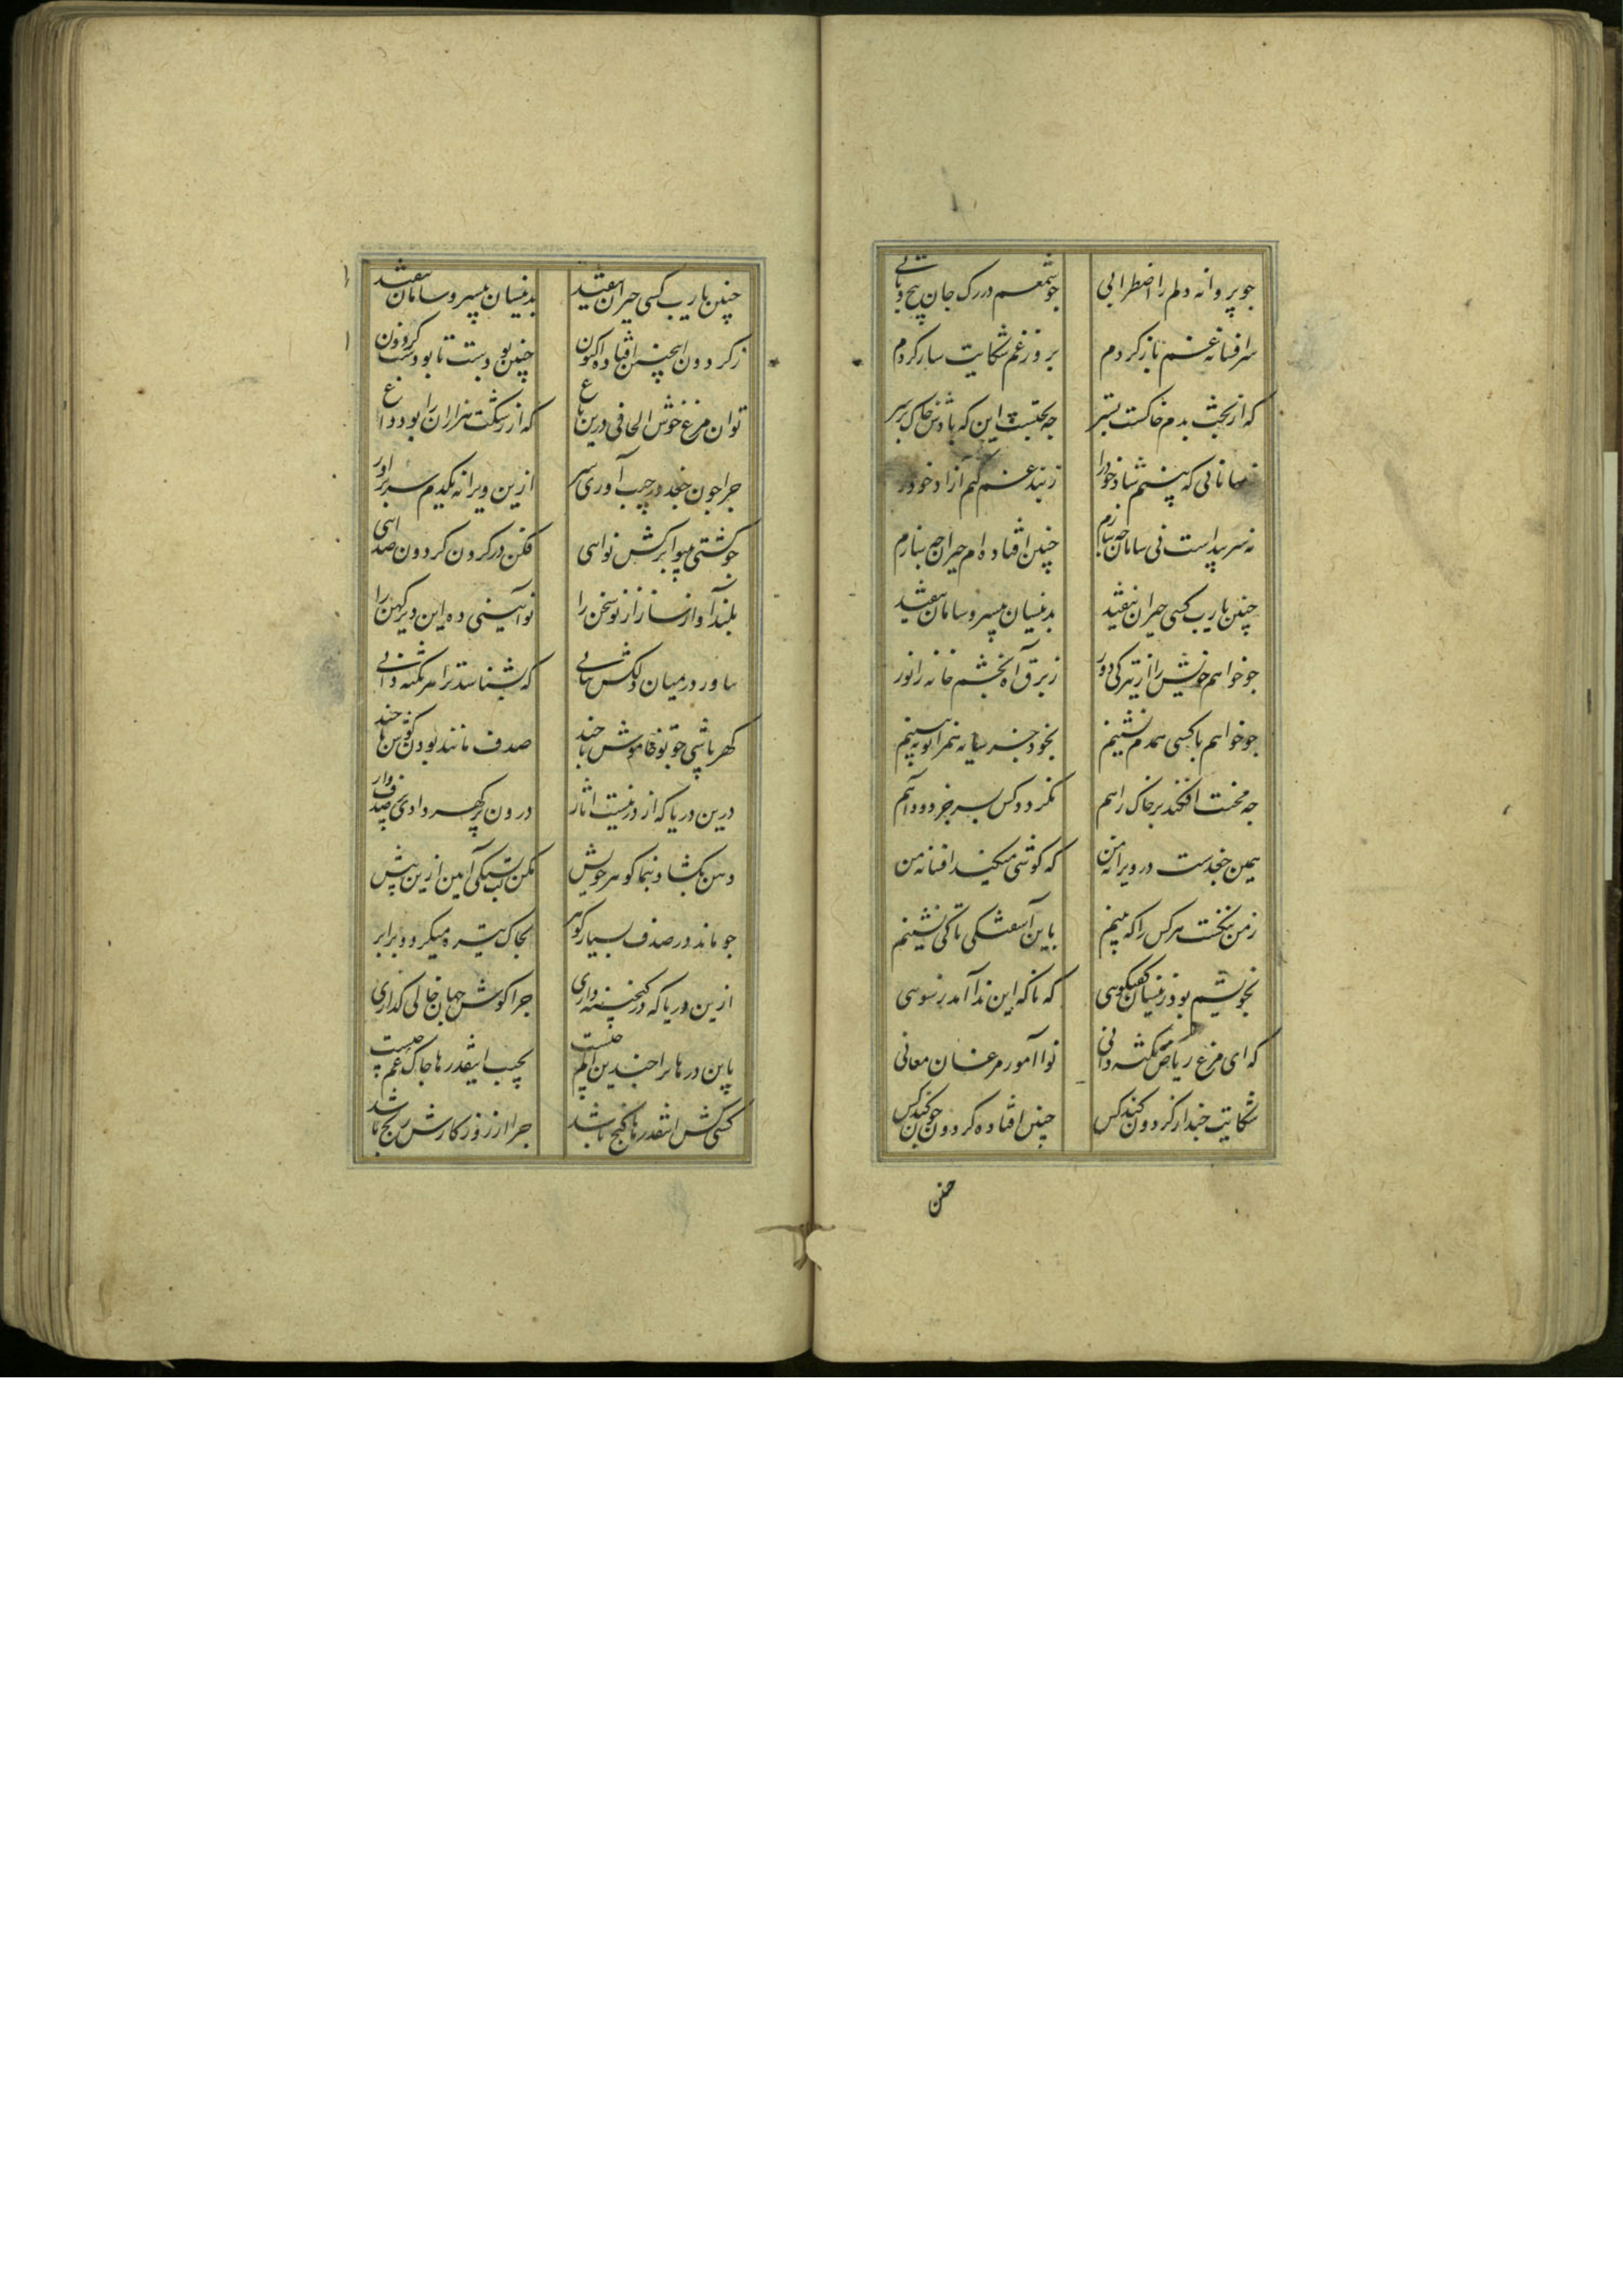 جو پروانه دلم را اضطرابی جو شمعم در رک جان پیچ و تابی
سر افسانه غم باز کردم بروز غم شکایت ساز کردم
که از بخت بدم خاکست بستر جه بختست این که بادش خاک بر سر
نه سامانی که بینم شاد خود را ز بند غم کنم ازاد خود را
نه سر پیداست نی سامان جه سازم چنین افتاده ام حیران جه سازم
چنین یارب کسی حیران نیفتد بدینسان بیسر و سامان نیفتد
جو خواهم خویش را از تیرکی دور ز برق آه بخشم خانه را نور
جو خواهم با کسی همدم نشینم بخود جز سایه همزانو نه بینم
جه محنت افکند بر خاک راهم نکردد کس بسر جز دود آهم
همین جغدست در ویرانه من که کوشی میکند افسانه من
ز من هرکس را که بینم باین آشفتکی تا کی نشینم
بخویشم بود زینسان کفتکویی که ناکه این ندا آمد ز سویی
که ای مرغ ریاض نکته دانی نوا آموز مرغان معانی
شکایت جند از کردون کند کس چنین افتاده کردون جون کند کس
چنین
چنین یارب کسی حیران نیفتد بدینسان بیسر و سامان نیفتد
ز کردون اینچنین افتاده اکنون چنین بودست تا بودست کردون
تو ان مرغ خوش الحانی درین باغ که از رشکت هزاران را بود داغ
جرا جون جغد در جیب آوری سر ازین ویرانه یکدم سر بر اور
جو کشتی بینوا برکش نوایی فکن در کردون کردون صدایی
بلند آوازه ساز از نو سخن را نو آیینی ده این دیر کهن را
بیاور در میان دلکش کتابی که بشناسد ترا هر نکته دانی
کهر باشی جو تو خاموش تا جند صدف مانند بودن کوش تا جند
درین دریا که از در نیست اثار درون پر کهر داری صدف وار
دهن بکشا و بنما کوهر خویش مکن لب تشنکی آیین ازین پیش
جو ماند در صدف بسیار کوهر بخاک تیره میکردد برابر
ازین دریا که در کنجینه داری جرا کوش جهان خالی کذاری
باین درها ترا جندین الم جیست بجیب اینقدرها جاک غم جیست
کسی کش اینقدرها کنج باشد جرا از روزکارش رنج باشد